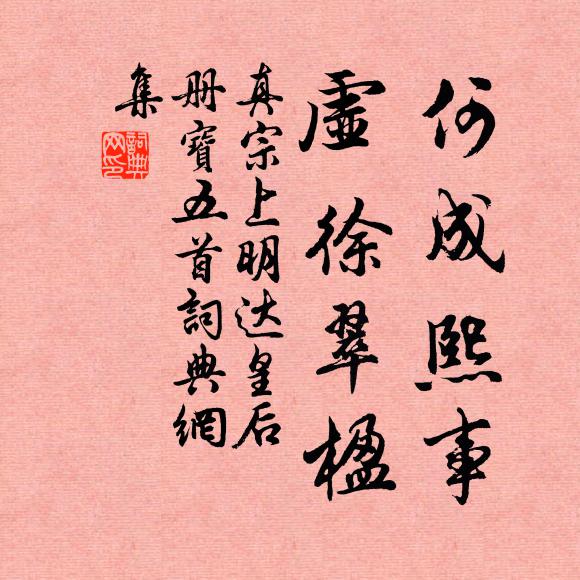 何成熙事
虛徐翠楹
真宗上明达皇后
册寶五首詞典網
集
詞典
网印